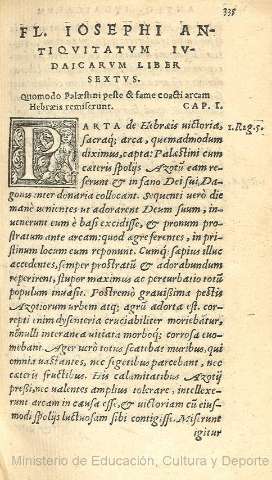 338
FL. IOSEPHI AN-
TIQVITATVM IV-
DAICARVM LIBER
SEXTVS.
Quomodo Palæstini peste & fame coacti arcam
Hebræis remiserunt. CAP. I.
PARTA de Hebræis victoria, 1.Reg.5.
sacraq; arca, quemadmodum
diximus, capta: Palæstini cum
cateris spolijs Azotũ eam re-
ferunt & in fano Dei sui, Da-
gonis inter donaria collocant. sequenti verò die
manè venientes ut adorarent Deum suum, in-
uenerunt eum è basi excidisse, & pronum pro-
stratum ante arcam: quod agrè ferentes, in pri-
stinum locum eum reponunt. Cumq; sæpius illuc
accedentes, semper prostratũ & adorabundum
reperirent, stupor maximus ac perturbatio totũ
populum inuasit. Postremò grauissima pestis
Azotiorum urbem atq; agrũ adorta est. cor-
repti enim dysenteria cruciabiliter moriebãtur,
nõnulli interanea uitiata morboq; corrosa euo-
mebant. Ager uerò totus scatebat muribus, qui
omnia uastantes, nec segetibus parcebant, nec
cateris fructibus. His calamitatibus Azotij
pressi, nec ualentes amplius tolerare, intellexe-
runt arcam in causa esse, & uictoriam cũ eius-
modi spolijs luctuosam sibi contigisse. Miserunt
igitur
Ministerio de Educación, Cultura y Deporte